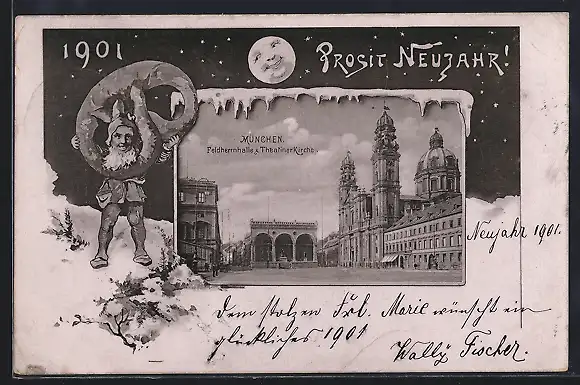 1901
PROSIT NEUJAHR!
MÜNCHEN.
Feldherrnhalle u. Theatiner Kirche.
Neujahr 1901.
Dem stolzen Frl. Marie wünscht ein
glückliches 1901
Wally Fischer.